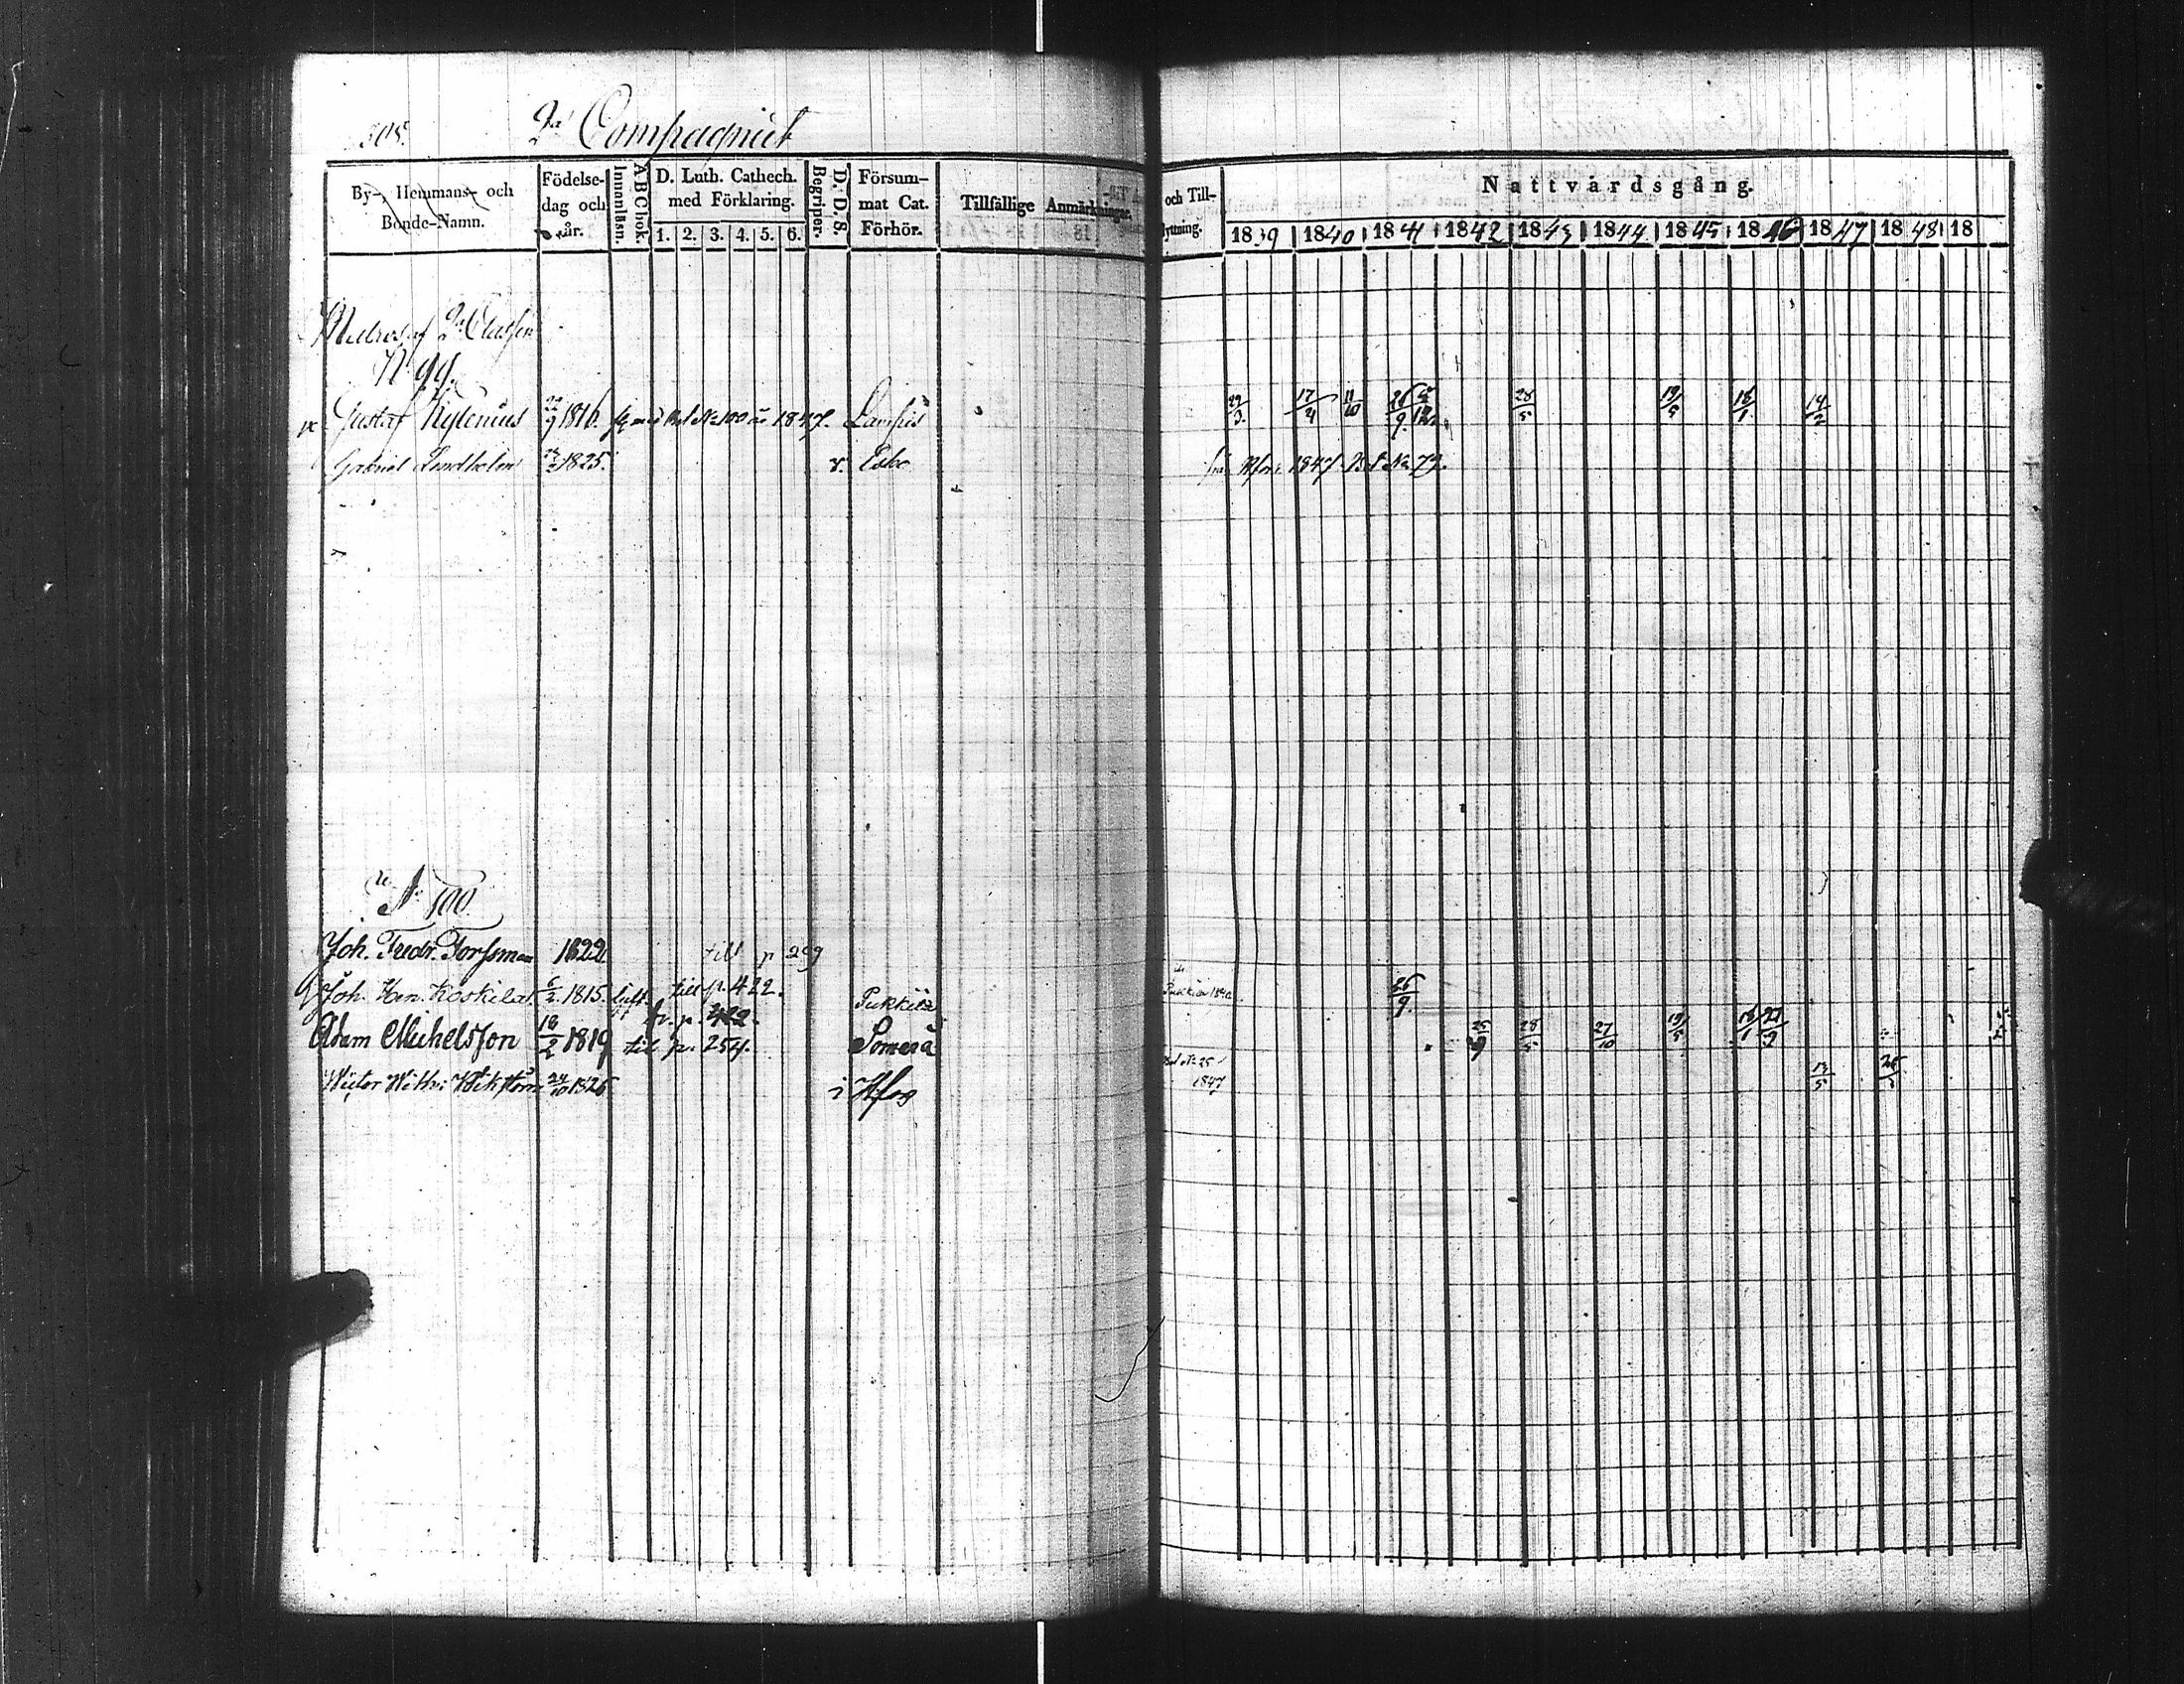 505. 2a Compagniet
By-, Hemmans- och Bonde-Namn.
Födelse-dag och år.
Innanläsn.
A B C bok.
D. Luth. Cathech. med Förklaring.
1. 2. 3. 4. 5. 6.
Begriper.
D. D. S.
Försum-mat Cat. Förhör.
Tillfällige Anmärkningar.
och Till-
yttning.
Nattvårdsgång.
1839 1840 1841 1842 1843 1844 1845 1846 1847 1848 18
af 2a Classen
N 99.
Gustaf Kylenius 22/9 1816. N:o 100 1847. Lampis 29/3. 17/4 11/10 26/9. 28/5 19/5 18/1 14/2
Gabriel Lindholm 1825. Esbo 1847 N:o 79.
N:o 100
Joh. Fredr. Forssman 1822 till p 299
Joh. Hen. Koskela 6/2. 1815. gift. till p. 422. Pukkila 26/9.
Adam Michelsson 18/2 1819 till p. 254. Somerå 25/9 28/5 27/10 19/5 18/1 27/9
Wictor Wilh: Wikström 24/10 1826 i Hfors N:o 25 1847 13/5